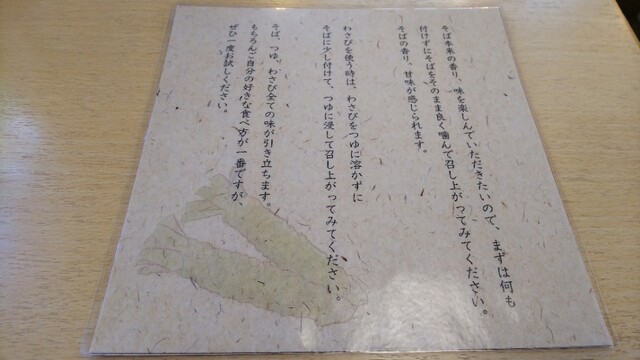 そば本来の香り、味を楽しんでいただきたいので、まずは何も
付けずにそばをそのまま良く噛んで召し上がってみてください。
そばの香り、甘味が感じられます。
わさびを使う時は、わさびをつゆに溶かずに
そばに少し付けて、つゆに浸して召し上がってみてください。
そば、つゆ、わさび全ての味が引き立ちます。
もちろんご自分の好きな食べ方が一番ですが、
ぜひ一度お試しください。